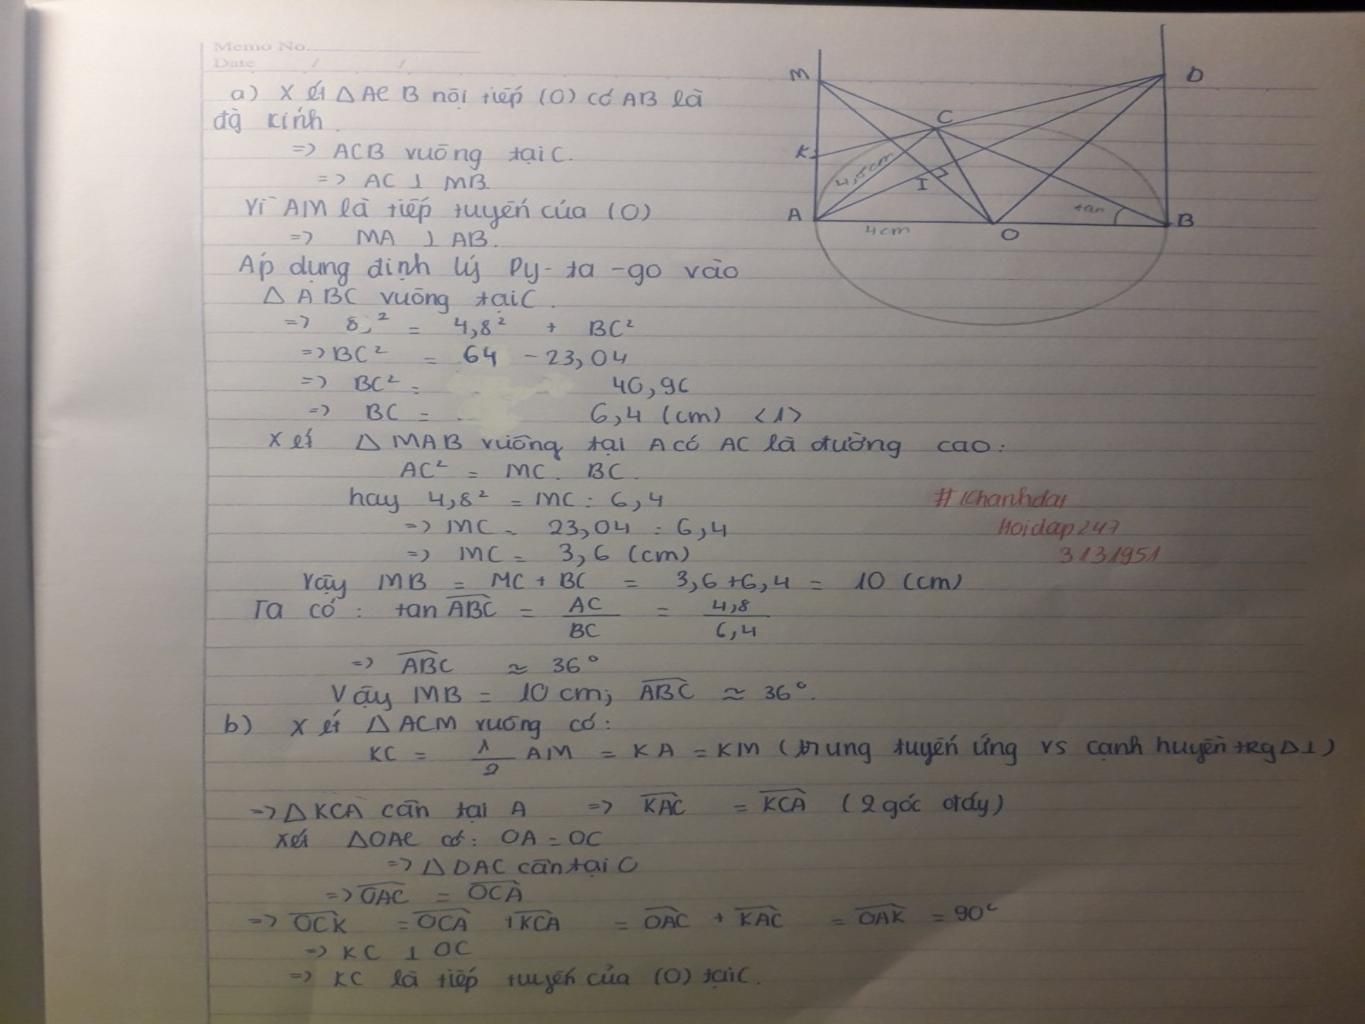 Memo No.
Date / /
a) Xét △ACB nội tiếp (O) có AB là
đg kính
=> ACB vuông tại C.
=> AC ⊥ MB.
Vì AM là tiếp tuyến của (O)
=> MA ⊥ AB.
Áp dụng định lý Py-ta-go vào
△ABC vuông tại C.
=> 8² = 4,8² + BC²
=> BC² = 64 - 23,04
=> BC² = 40,96
=> BC = 6,4 (cm) <1>
Xét △MAB vuông tại A có AC là đường cao:
AC² = MC. BC.
hay 4,8² = MC . 6,4
=> MC = 23,04 : 6,4
=> MC = 3,6 (cm)
Vậy MB = MC + BC = 3,6 + 6,4 = 10 (cm)
Ta có: tan ABC = AC/BC = 4,8/6,4
=> ABC ≈ 36°
Vậy MB = 10 cm; ABC ≈ 36°.
b) Xét △ACM vuông có:
KC = 1/2 AM = KA = KM (trung tuyến ứng vs cạnh huyền trg △⊥)
=> △KCA cân tại A => KAC = KCA (2 góc ở đáy)
Xét △OAC có: OA = OC
=> △OAC cân tại O
=> OAC = OCA
=> OCK = OCA + KCA = OAC + KAC = OAK = 90°
=> KC ⊥ OC
=> KC là tiếp tuyến của (O) tại C.
M
D
C
K
4,8cm
I
A
4cm
O
tan
B
#Khanhdat
Hoidap247
3131951